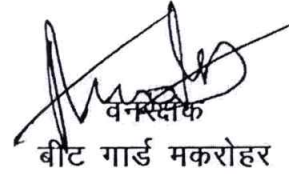 वनरक्षक
बीट गार्ड मकरोहर